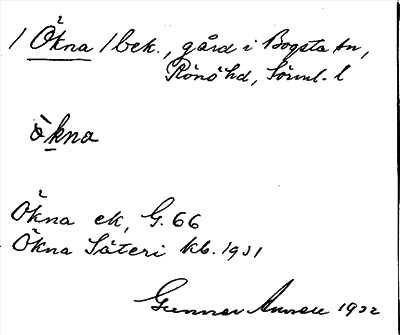 / Ökna / bek., gård i Bogsta sn,
Rönö hd, Sörml. l
ökna
Ökna ek, G. 66
Ökna Säteri kb. 1931
Gunnar 1932